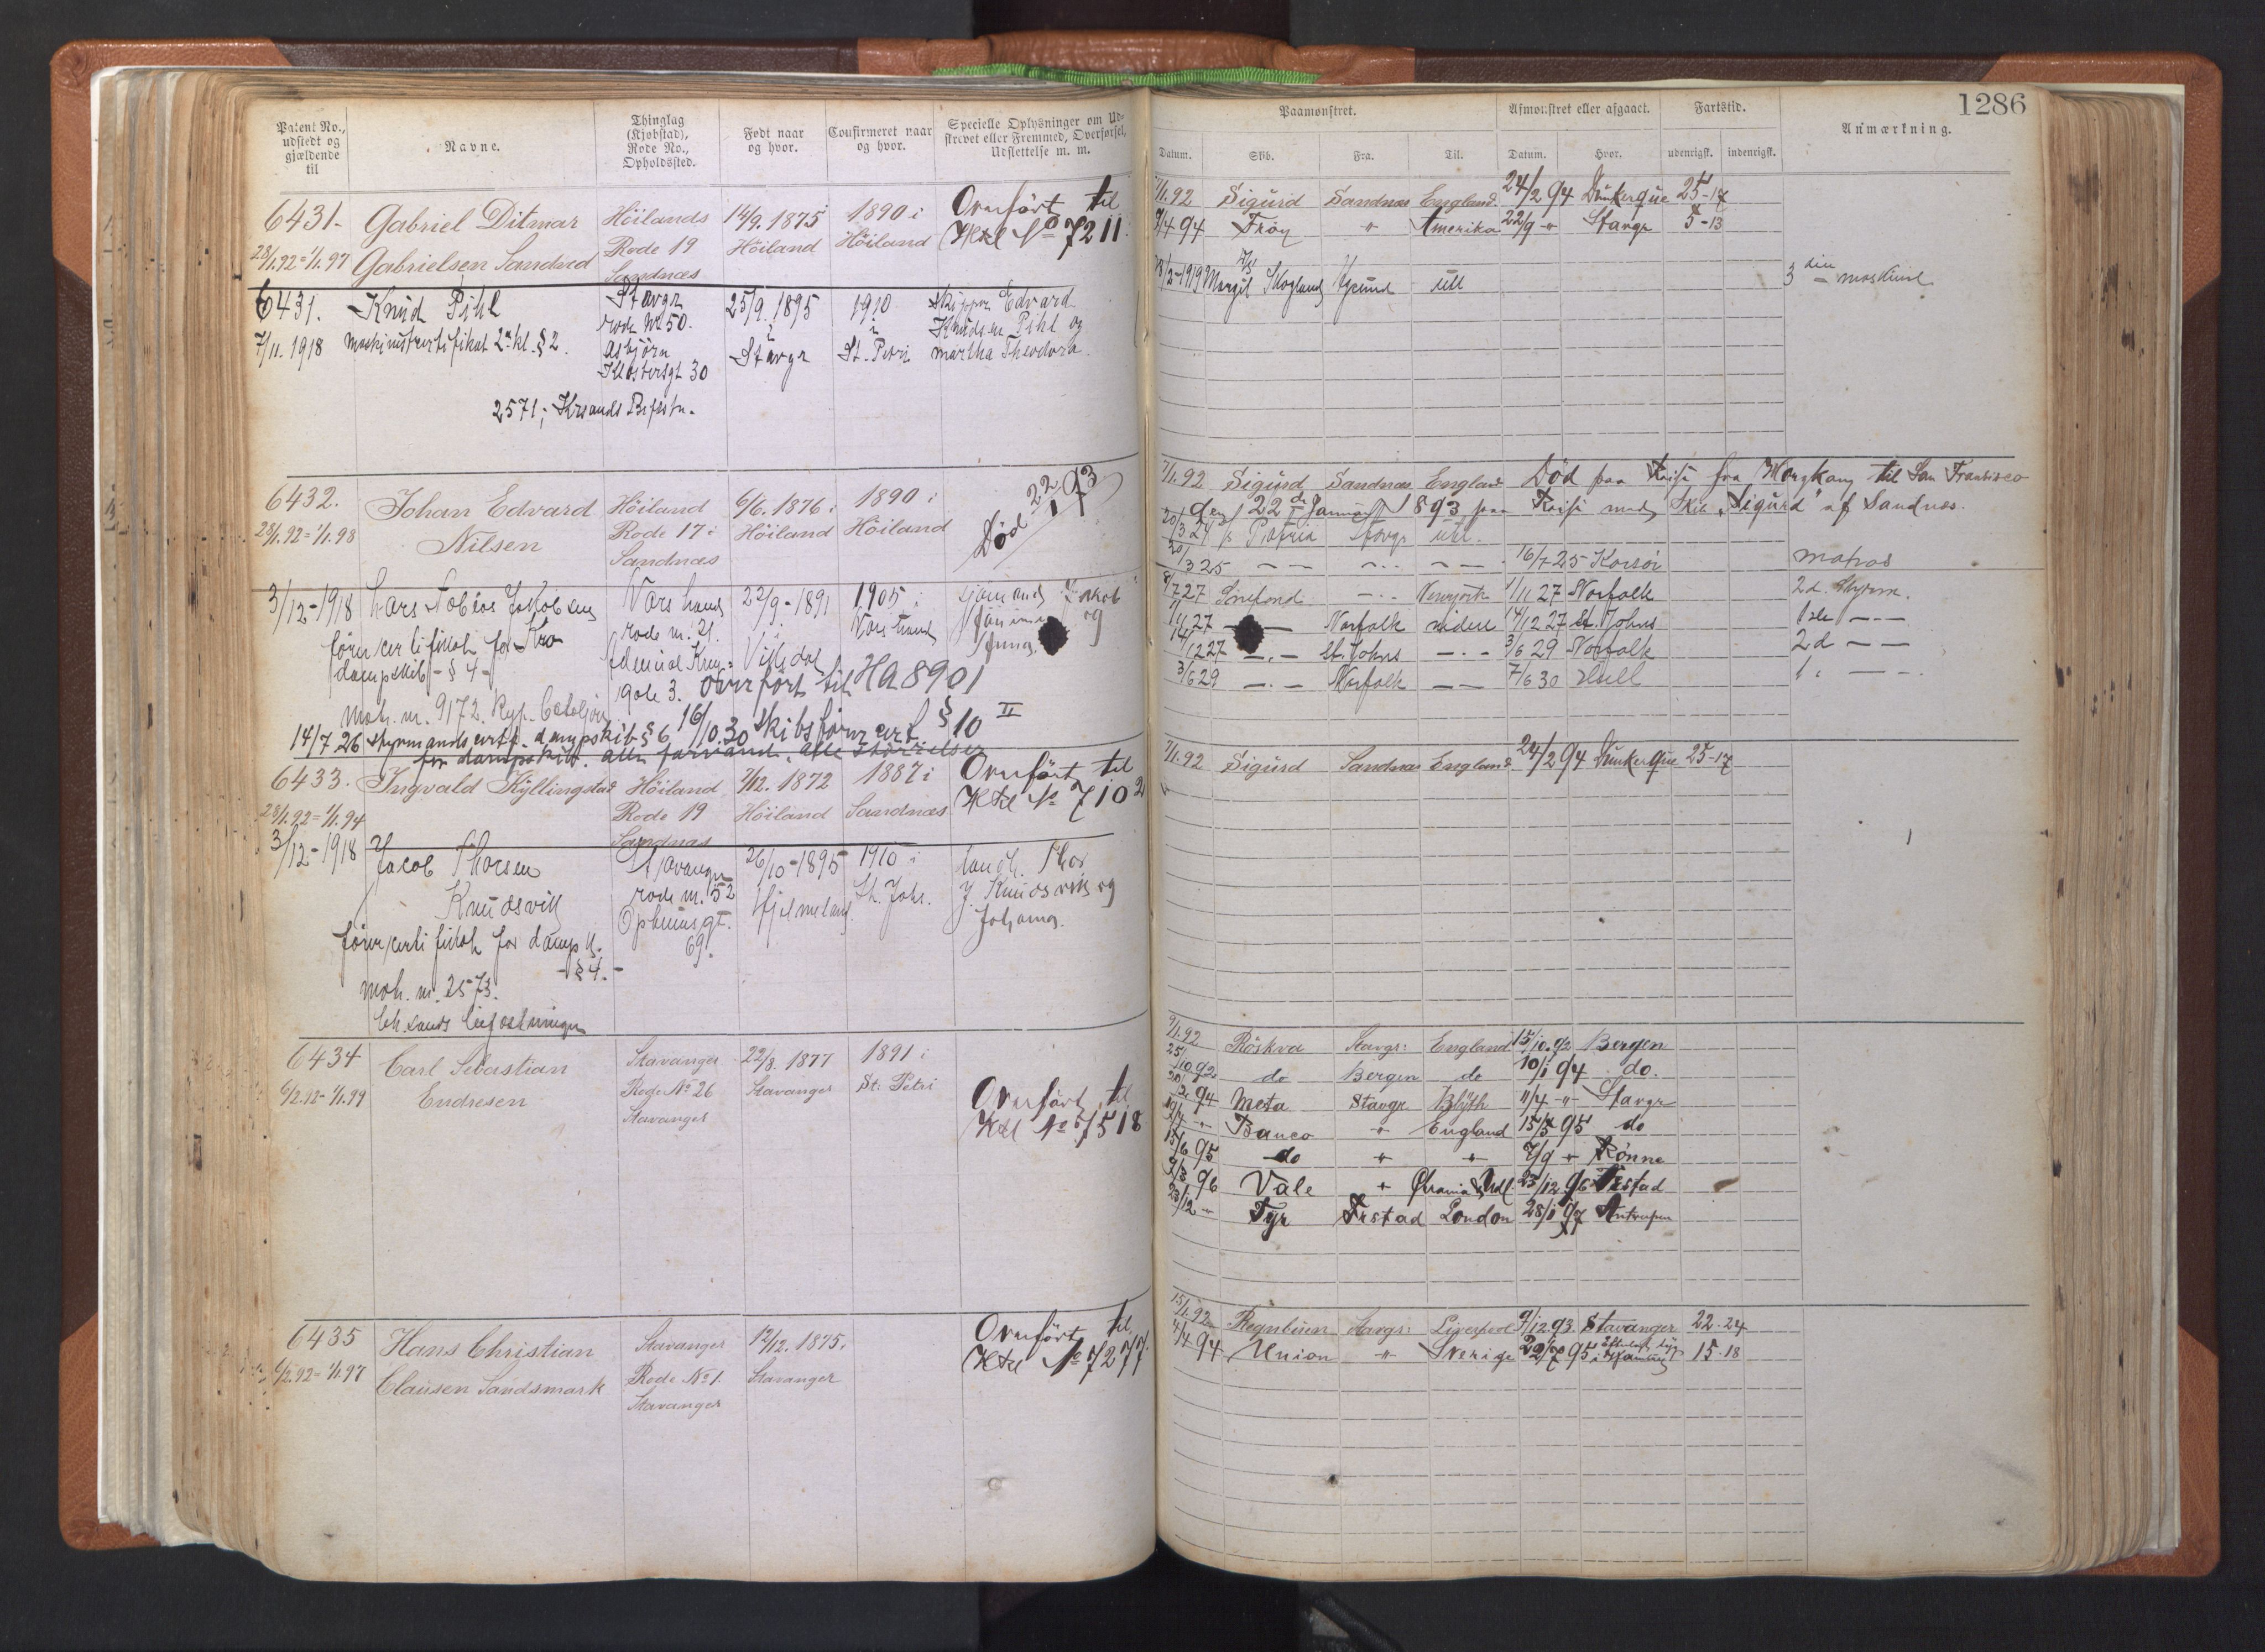 1286
Patent No., udstedt og gjældende til
Navne.
Thinglag (Kjøbstad), Rode No., Opholdssted.
Født naar og hvor.
Confirmeret naar og hvor.
Specielle Oplysninger om Udskrevet eller Fremmed, Overførsel, Udslettelse m. m.
Paamønstret.
Afmønstret eller afgaaet.
Fartstid.
Anmærkning.
Datum. Skib. Fra. Til. Datum. Hvor. udenrigsk. indenrigsk.
6431. Gabriel Ditmar Höilands 14/9. 1875 i 1890 i Overfört til
28/1.92=1/1.97 Gabrielsen Sandved Rode 19 Höiland Höiland No 7211.
Sandnæs
6431. Knud Pihl Stavgr 25/9. 1895 1910 Skipper Edvard
rode No 50. i i Knudsen Pihl og
7/11. 1918 2 kl. § 2. Asbjörn Stavgr St. Petri martha Theodora.
Klostersgt 30
2571;
6432. Johan Edvard Höiland 6/6. 1876 i 1890 i Död 22/1 93
28/1.92=1/1.98 Nilsen Rode 17 i Höiland Höiland
Sandnæs
3/12-1918 Lars Tobias Jakobsen 22/9-1891 1905 i Jakob
rode nr. 21. og
dampskib - § 4 -
gate 3. Overfört til Ha 8901
9172.
14/7 26 dampskib § 6 16/10.30 Skibsförercert § 10 II
for dampskib. alle farvand. alle störrelser
6433. Ingvald Kyllingstad Höiland 7/12. 1872 1887 i Overfört til
28/1.92=1/1.94 Rode 19 Höiland Sandnæs No 7102
Sandnæs
3/12-1918 Jacob Thorsen Stavanger 26/10-1895 1910 i Thor
Knudsvik rode nr. 52 Hjelmeland St. Johs. J. Knudsvik og
69. Johanna.
§ 4.
nr. 2573.
6434 Carl Sebastian Stavanger 22/8. 1877 1891 i
Endresen Rode No 26 Stavanger St. Petri Overfört til
Stavanger No 7518
6435 Hans Christian Stavanger 12/12. 1875 i Overfört til
6/2.92=1/1.97 Clausen Sandsmark Rode No 1. Stavanger No 7277.
Stavanger
7/1.92 Sigurd Sandnæs England 24/2 94 Dunkerque 25-17
9/4 94 Fröy " Amerika 22/9 " Stavgr 5-13
Margit Skogland 3
7/1.92 Sigurd Sandnæs England Död paa Reise fra til San Fransisco
den 22de Januar 1893 paa Reise med Skib "Sigurd" af Sandnæs.
20/3 24 Patria Stavgr utl.
20/3 25 16/7 25 Korsör matros
8/7 27 Newyork 1/11 27 Norfolk 2d. Styrm.
1/11 27 Norfolk videre 14/12 27 St. Johns 1ste
14/12 27 St. Johns 3/6 29 Norfolk 2d
3/6 29 Norfolk 7/6 30 Hull 1.
7/1.92 Sigurd Sandnæs England 24/2 94 Dunkerque 25-17
9/1.92 Röskva Stavgr: England 15/10.92 Bergen
25/10 92 do Bergen do 10/1 94 do.
20/2 94 Meta Stavgr Blyth 11/4 " Stavgr
Banco " England 15/5 95 do
15/6 95 do " " 7/9 " Rönne
7/3 96 Vale " 23/12 96 Frstad
23/12 " Tyr Frstad London 28/1 97 Antverpen
15/1.92 Regnbuen Stavgr: Liverpool 9/12.93. Stavanger 22-24
4/4 94 Union " Sverige 22/7 95 15-18